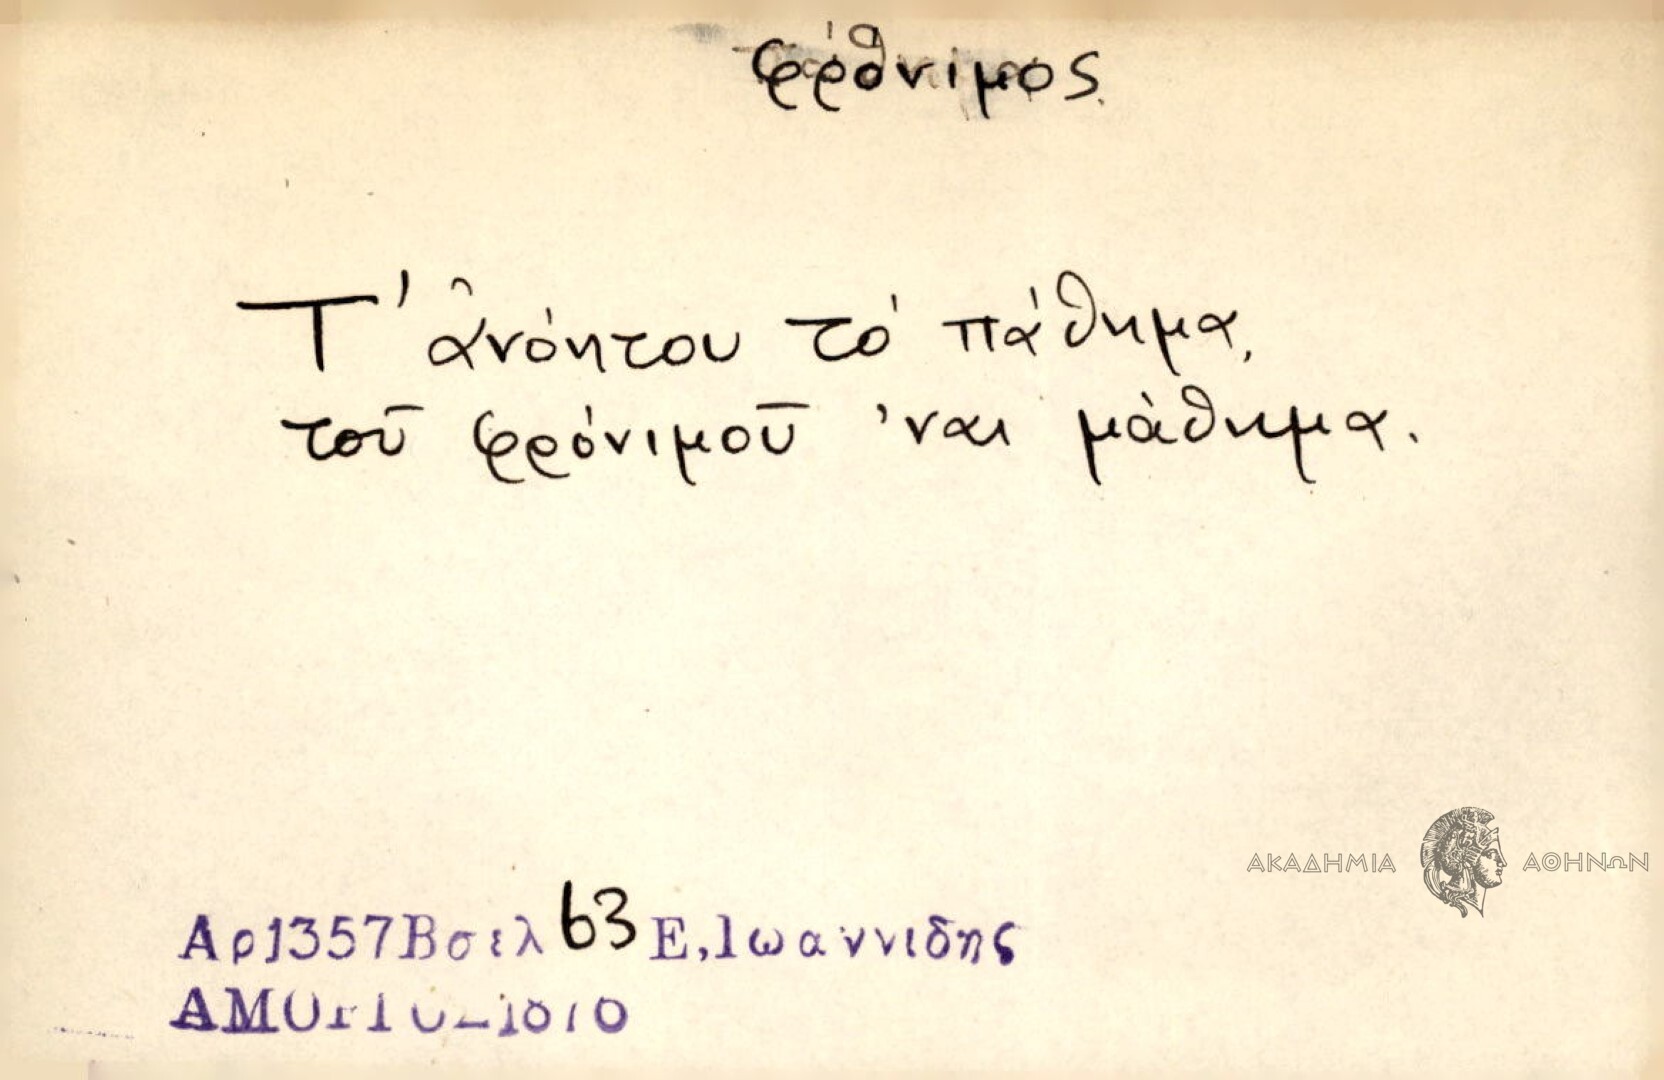 φρόνιμος.
Τ' ἀνόητου τό πάθημα,
τοῦ φρόνιμοῦ 'ναι μάθημα.
ΑΚΑΔΗΜΙΑ ΑΘΗΝΩΝ
Αρ1357Βσελ 63 Ε,Ιωαννιδης